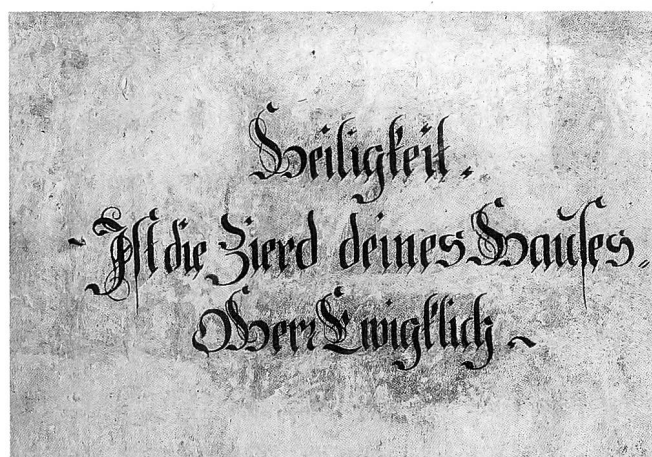 Heiligkeit.
~ Ist die Zierd deines Hauses.
O Herr Ewigklich ~